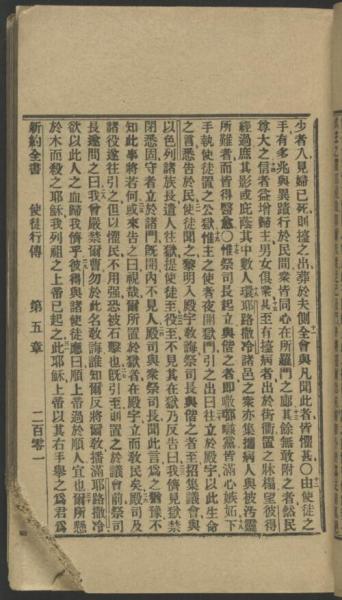 少者入見婦已死則擡之出葬於夫側全會與凡聞此者皆懼甚〇由使徒之
手有多兆與異蹟行於民間衆皆同心在所羅門之廊其餘無敢附之者然民
尊大之信者益增歸主男女俱衆甚至有擡病者出於街衢置之牀榻望彼得
經過庶其影或庇蔭其中數人環耶路撒冷諸邑之衆亦集攜病人與被汚靈
所難者而皆得醫愈〇惟祭司長起立與偕之者即 黨皆滿心嫉妬下
手執使徒置之公獄惟主之使者夜開獄門引之出曰往立於殿宇以此生命
之言悉告於民使徒聞之黎明入殿宇敎誨祭司長與偕之者至招集議會與
以色列諸族長遣人往獄提使徒至役至不見其在獄乃反告曰我儕見獄禁
閉悉固守者立於諸門旣開內不見人殿司與衆祭司長聞此言爲之猶豫不
知此事將若何或來告之曰視哉爾所置於獄者在殿宇立而敎民矣殿司及
諸役遂往引之但以懼民不用强恐被石擊也旣引至則置之於議會前祭司
長遂問之曰我曾嚴禁爾曹勿於此名敎誨誰知爾反將爾敎播滿耶路撒冷
欲以此人之血歸我儕乎彼得與諸使徒應曰順上帝過於順人宜也爾所懸
於木而殺之耶穌我列祖之上帝已起之此耶穌上帝以其右手舉之爲君爲
新約全書 使徒行傳 第五章 二百零一